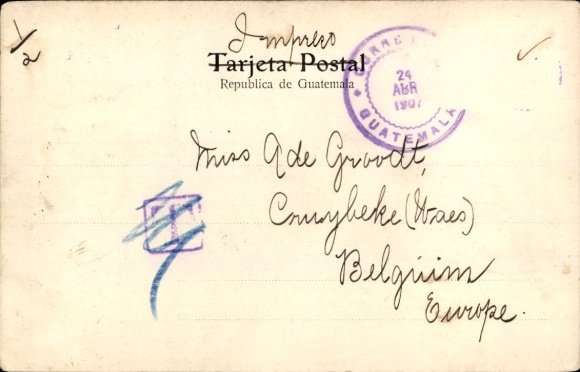 1/2
Impreso
Tarjeta Postal
Republica de Guatemala
24
ABR
1907
GUATEMALA
Miss A de Groodt,
Cruybeke (Waes)
Belgium
Europe.
T